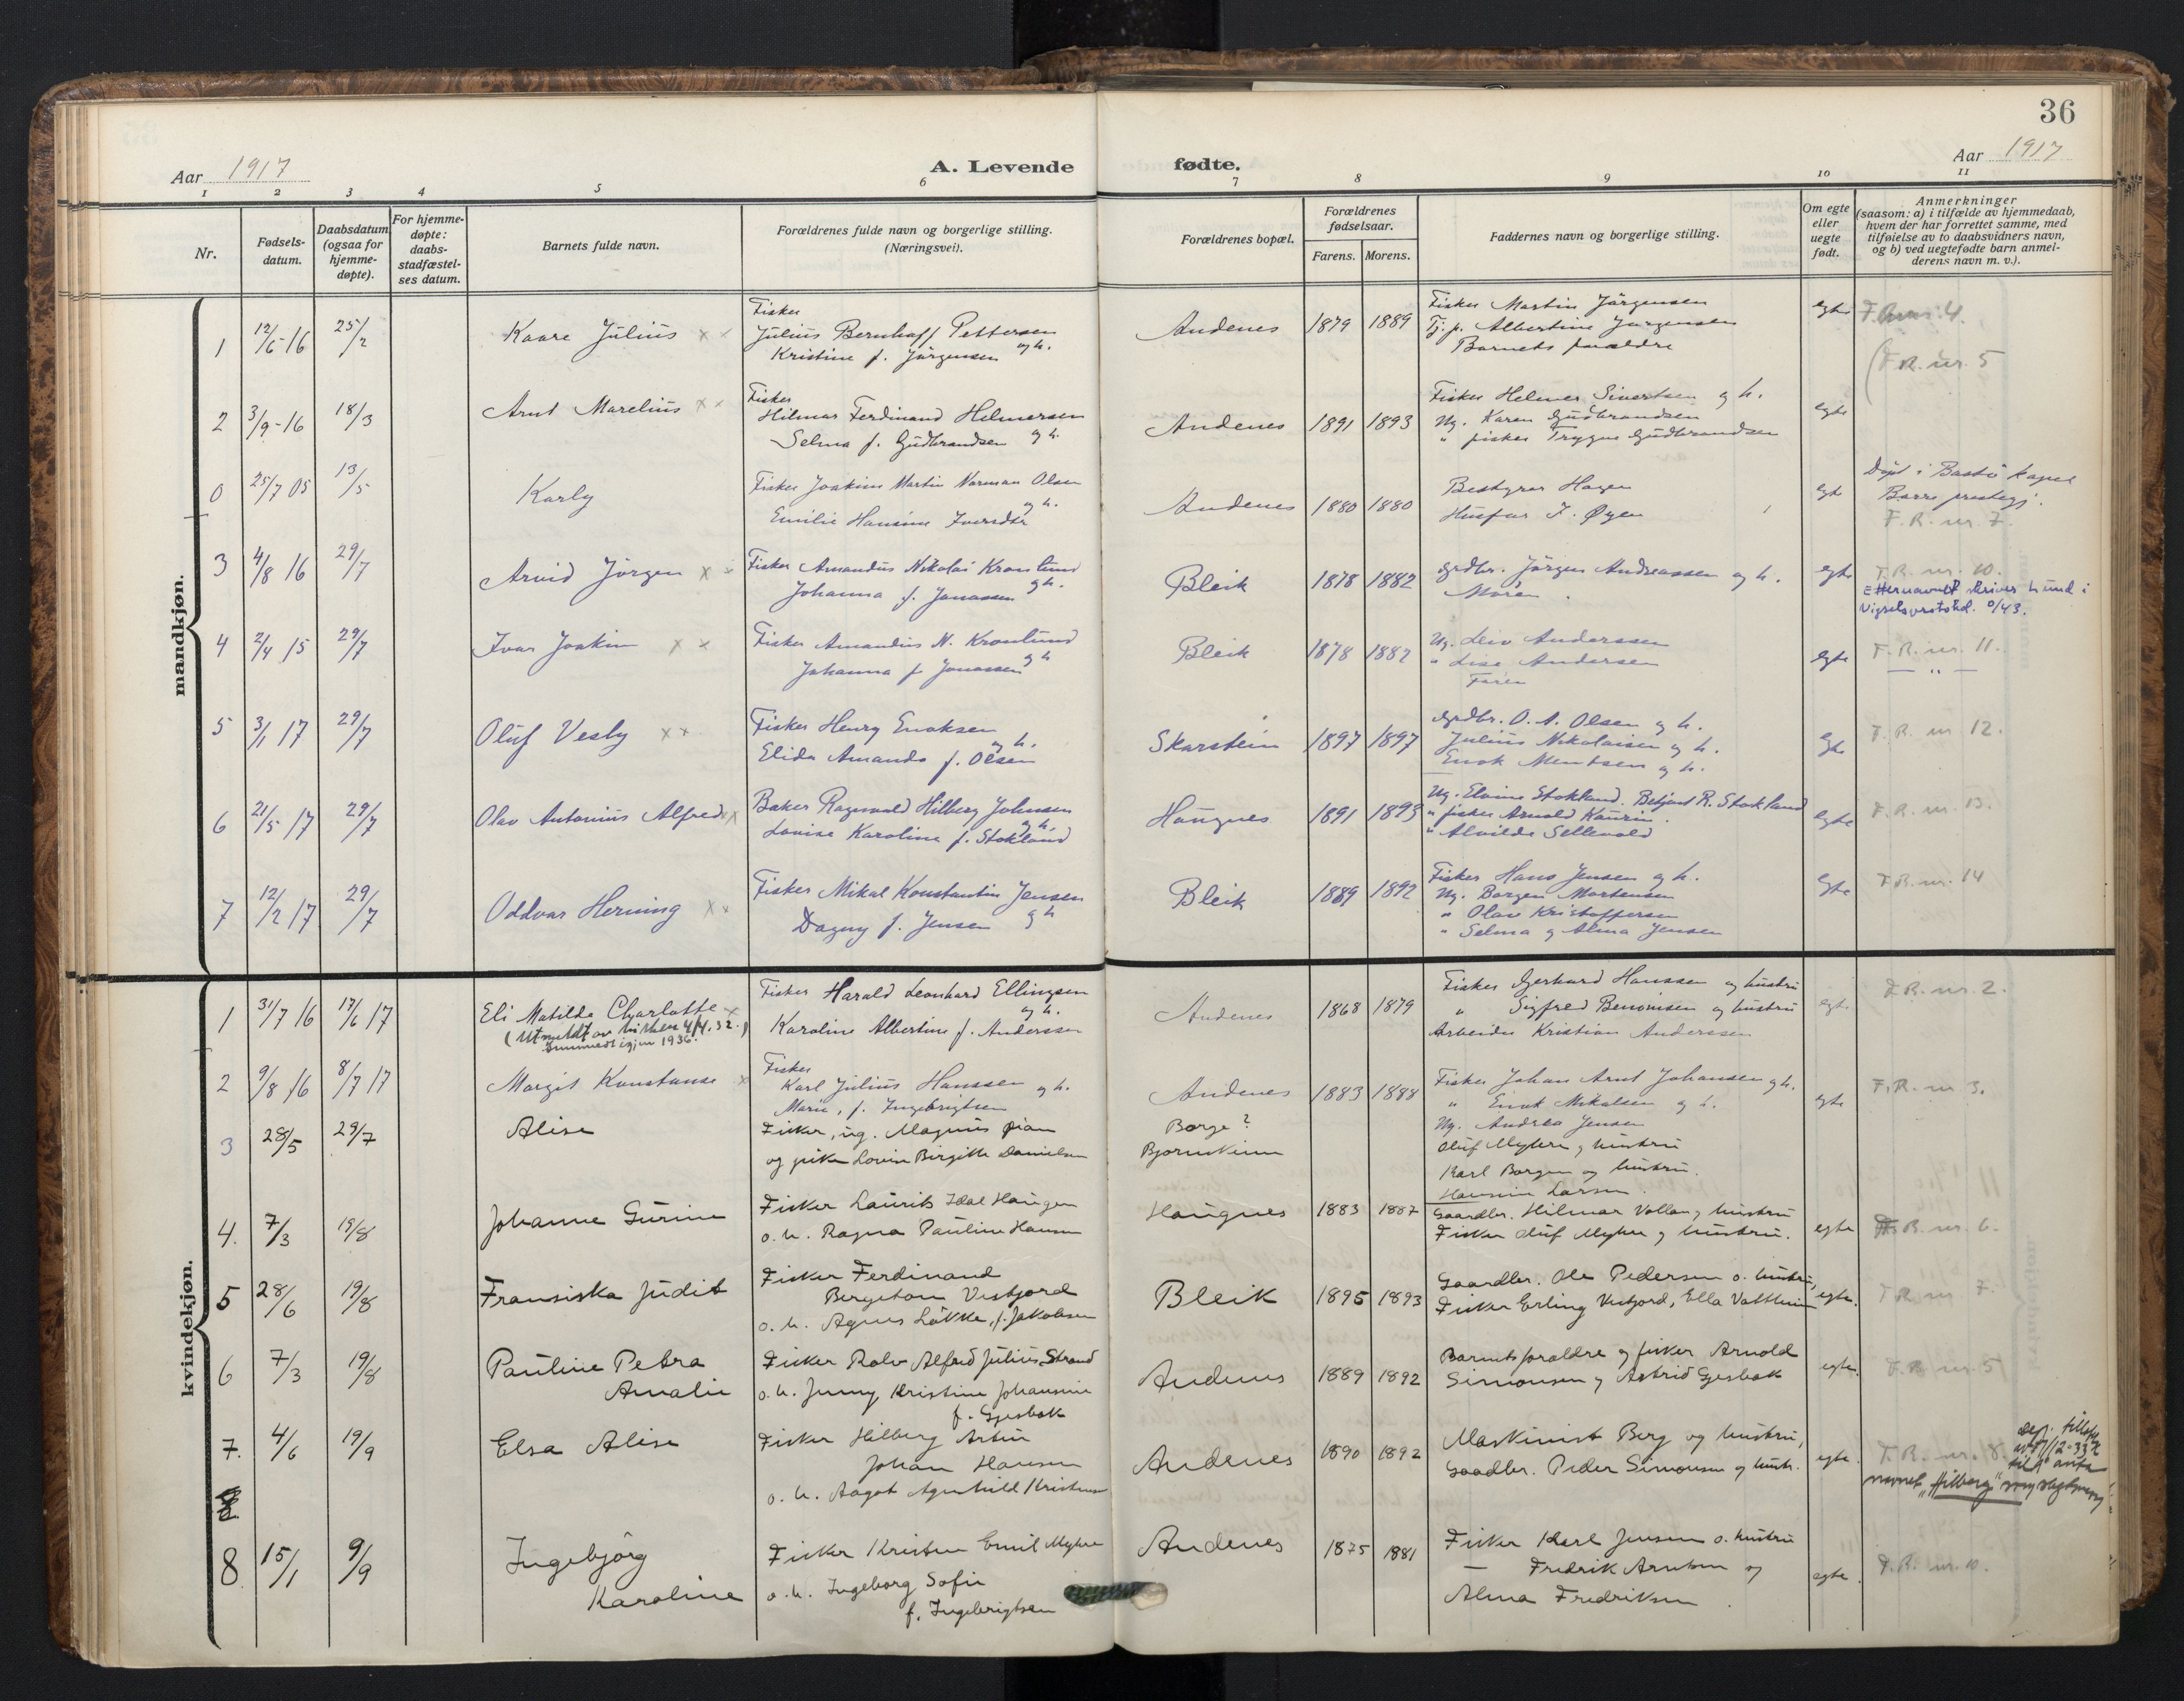 36
Aar 1917
A. Levende fødte.
Aar 1917
1 2 3 4 5 6 7 8 9 10 11
Nr.
Fødsels-
datum.
Daabsdatum
(ogsaa for
hjemme-
døpte).
For hjemme-
døpte:
daabs-
stadfæstel-
ses datum.
Barnets fulde navn.
Forældrenes fulde navn og borgerlige stilling.
(Næringsvei).
Forældrenes bopæl.
Forældrenes
fødselsaar.
Farens. Morens.
Faddernes navn og borgerlige stilling.
Om egte
eller
uegte
født.
Anmerkninger
(saasom: a) i tilfælde av hjemmedaab,
hvem der har forrettet samme, med
tilføielse av to daabsvidners navn,
og b) ved uegtefødte barn anmel-
derens navn m. v.).
mandkjøn.
1 12/6-16 25/2 Kaare Julius
Fisker
Julius Bernhoff Pettersen
og h.
Kristine f. Jørgensen
Andenes 1879 1889
Fisker Martin Jørgensen
Tj. p. Albertine Jørgensen
Barnets forældre
egte
F.R. nr. 5
2 3/9-16 18/3 Arnt Marelius
Fisker
Hilmar Ferdinand Helmersen
og h.
Selma f. Gudbrandsen
Andenes 1891 1893
Fisker Helmer Sivertsen og h.
Ug. Karen Gudbrandsen
" fisker Trygve Gudbrandsen
egte
0 25/7 05 13/5 Karly
Fisker Joakim Martin Norman Olsen
og h.
Emilie Hansine Iversdtr
Andenes 1880 1880
Bestyrer Hagen
Husfar I. Øyen
egte
Døpt i Bastø kapel
Borre prestegj.
F.R. nr. 7.
3 4/8 16 29/7 Arvid Jørgen
Fisker Amandus Nikolai Kronlund
og h.
Johanna f. Jonassen
Bleik 1878 1882
Grdbr. Jörgen Andreassen og h.
Moren.
egte
F.R. nr. 10.
Etternavnet skrives m/und i
Vigselsprotokol. 0/43.
4 2/4 15 29/7 Ivar Joakim
Fisker Amandus N. Kronlund
og h
Johanna f. Jonassen
Bleik 1878 1882
Ug. Leiv Anderssen
" Lise Andersen
Faren
egte
F.R. nr. 11.
— " —
5 3/1 17 29/7 Oluf Vesly
Fisker Henry Enoksen
og h.
Elida Amanda f. Olsen
Skarstein 1897 1897
Grdbr. O. A. Olsen og h.
Julius Nikolaisen og h.
Enok Mentsen og h.
egte
F.R. nr 12.
6 21/5 17 29/7 Olav Antonius Alfred
Baker Ragnvald Hilberg Johnsen
og h.
Lovise Karoline f. Stokland
Haugnes 1891 1893
Ug. Elvine Stokland. Betjent R. Stokland
" fisker Arnold Kaurin.
" Alvilde Sellevold
egte
F.R. nr. 13.
7 12/2 17 29/7 Oddvar Herning
Fisker Mikal Konstantin Jensen
og h
Dagny f. Jensen
Bleik 1889 1892
Fisker Hans Jensen og h.
Ug. Borgen Mortensen
" Olav Kristoffersen
" Selma og Alma Jensen
egte
F.R. nr. 14
kvindekjøn.
1 31/7 16 17/6 17 Eli Matilde Charlotte
(Utmeldt av kirken 4/4.32.)
Innmeldt igjen 1936.
Fisker Harald Leonhard Ellingsen
og h.
Karoline Albertine f. Anderssen
Andenes 1868 1879
Fisker Gerhard Hanssen og hustru
" Sigfred Benonisen og hustru
Arbeider Kristian Anderssen
egte.
F.R. nr. 2.
2 9/8 16 8/7 17 Margit Konstanse
Fisker
Karl Julius Hanssen og h.
Marie, f. Ingebrigtsen
Andenes 1883 1888
Fisker Johan Arnt Johansen og h.
" Enok Mikalsen og h.
Ug. Andrea Jensen
egte
F.R. nr 3.
3 28/5 29/7 Alise
Fisker, ug. Magnus
og pike Lovise Birgitte Danielsen
Borge?
Bjørnskinn
Oluf Myhre og hustru
Karl Borgen og hustru.
Hansine Larsen.
4. 7/3 19/8 Johanne Gurine
Fisker Laurits Idal Haugen
o. h. Ragna Pauline Hansen
Haugnes 1883 1887
Gaardbr. Hilmar Vollan og hustru
Fisker Oluf Myhre og hustru.
egte
F.R. nr. 6.
5 28/6 19/8 Fransiska Judit
Fisker Ferdinand
Bergeton Vestfjord
o. h. Agnes Løkke, f. Jakobsen
Bleik 1895 1893
Gaardbr. Ole Pedersen o. hustru,
Fisker Erling Vestfjord, Ella Valthein
egte.
F.R. nr 7.
6 7/3 19/8 Pauline Petra
Amalie
Fisker Rolv Alfred Julius Strand
o. h. Jenny Kristine Johansine
f. Gjesbak
Andenes 1889 1892
Barnets forældre og fisker Arnold
Simonsen og Astrid Gjesbak
egte.
F.R. nr. 5
7. 4/6 19/9 Elsa Alise
Fisker Hilberg Artur
Johan Hansen
o. h. Aagot Agenhild Kristensen
Andenes 1890 1892
Maskinist Berg og hustru,
Gaardbr. Peder Simonsen og hustr.
egte.
F.R. nr. 8.
navnet "Hilberg" som slegtsnavn
8 15/1 9/9 Ingebjörg
Karoline
Fisker Kristen Emil Myhre
o. h. Ingeborg Sofie
f. Ingebrigtsen
Andenes 1875 1881
Fisker Karl Jensen o. hustru
— Fredrik Arntsen og
Alma Fredriksen.
egte.
F.R. nr. 10.